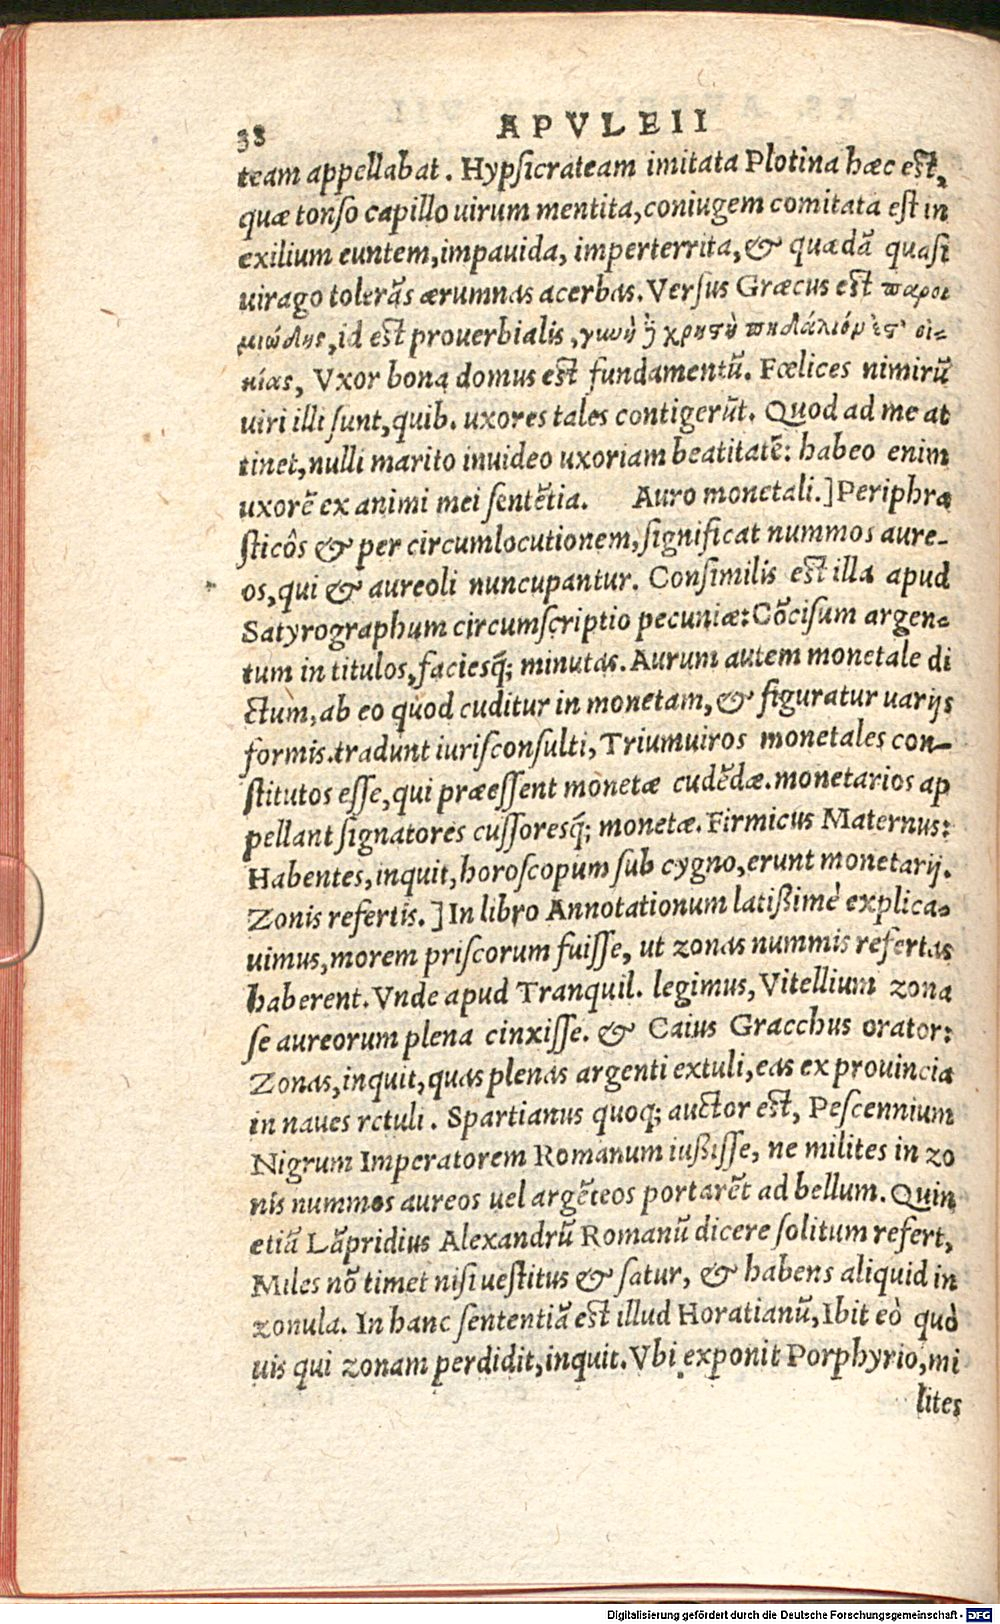 38 APVLEII
team appellabat. Hypsicrateam imitata Plotina hæc est,
quæ tonso capillo uirum mentita, coniugem comitata est in
exilium euntem, impauida, imperterrita, & quædã quasi
uirago tolerãs ærumnas acerbas. Versus Græcus est παροι
μιώδης, id est prouerbialis, γυνὴ ἡ χρηστὴ πηδάλιόν ἐστ' οἰ-
κίας, Vxor bona domus est fundamentũ. Fœlices nimirũ
uiri illi sunt, quib. uxores tales contigerũt. Quod ad me at
tinet, nulli marito inuideo uxoriam beatitatẽ: habeo enim
uxorẽ ex animi mei sentẽtia. Auro monetali.] Periphra
sticôs & per circumlocutionem, significat nummos aure-
os, qui & aureoli nuncupantur. Consimilis est illa apud
Satyrographum circumscriptio pecuniæ: Cõcisum argen-
tum in titulos, faciesq; minutas. Aurum autem monetale di
ctum, ab eo quod cuditur in monetam, & figuratur uarijs
formis. tradunt iurisconsulti, Triumuiros monetales con-
stitutos esse, qui præessent monetæ cudẽdæ. monetarios ap
pellant signatores cussoresq; monetæ. Firmicus Maternus:
Habentes, inquit, horoscopum sub cygno, erunt monetarij.
Zonis refertis.] In libro Annotationum latißimè explica-
uimus, morem priscorum fuisse, ut zonas nummis refertas
haberent. Vnde apud Tranquil. legimus, Vitellium zona
se aureorum plena cinxisse. & Caius Gracchus orator:
Zonas, inquit, quas plenas argenti extuli, eas ex prouincia
in naues retuli. Spartianus quoq; auctor est, Pescennium
Nigrum Imperatorem Romanum iußisse, ne milites in zo
nis nummos aureos uel argẽteos portarẽt ad bellum. Quin
etiã Lãpridius Alexandrũ Romanũ dicere solitum refert,
Miles nõ timet nisi uestitus & satur, & habens aliquid in
zonula. In hanc sententiã est illud Horatianũ, Ibit eò quò
uis qui zonam perdidit, inquit. Vbi exponit Porphyrio, mi
lites
Digitalisierung gefördert durch die Deutsche Forschungsgemeinschaft - DFG